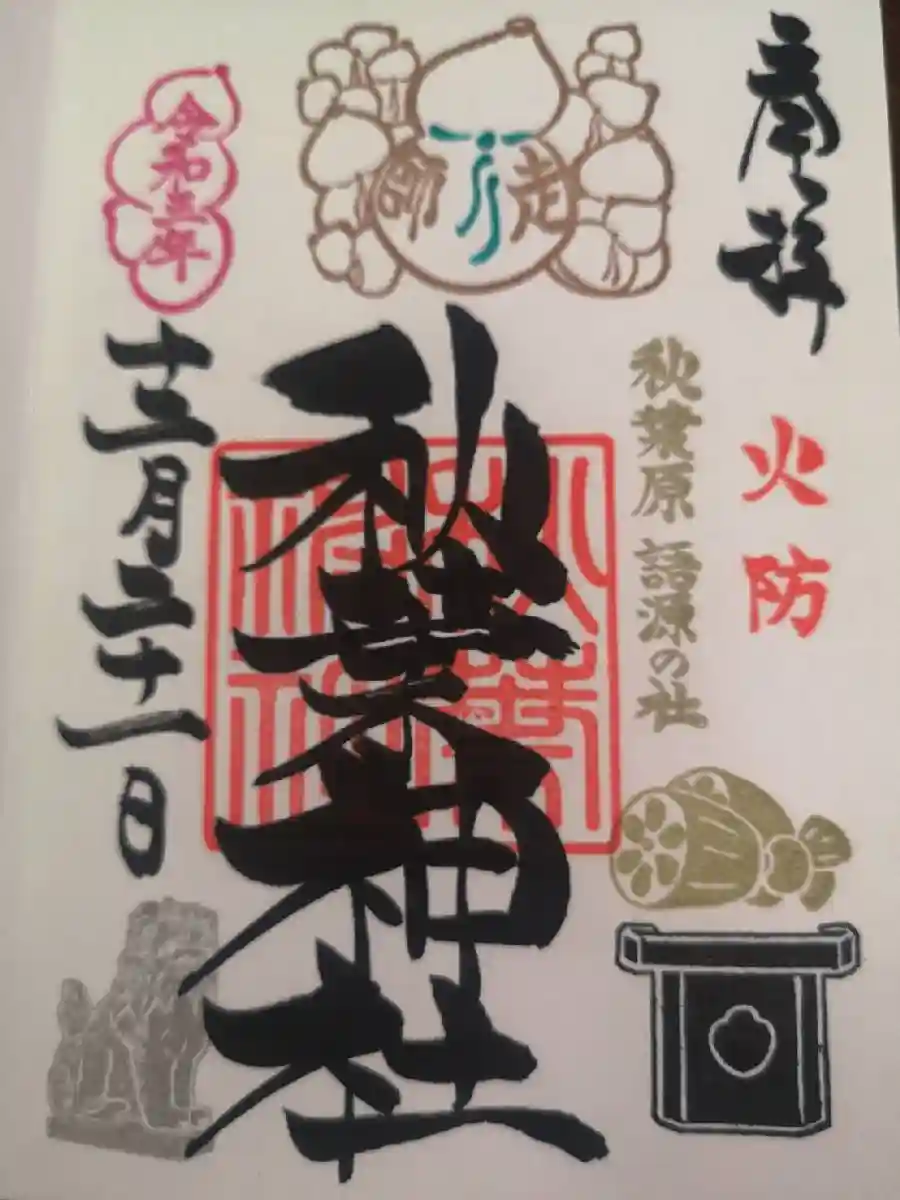 奉拝
火防
秋葉原 語源の社
師走
秋葉神社
秋葉神社
令和三年
十二月三十一日